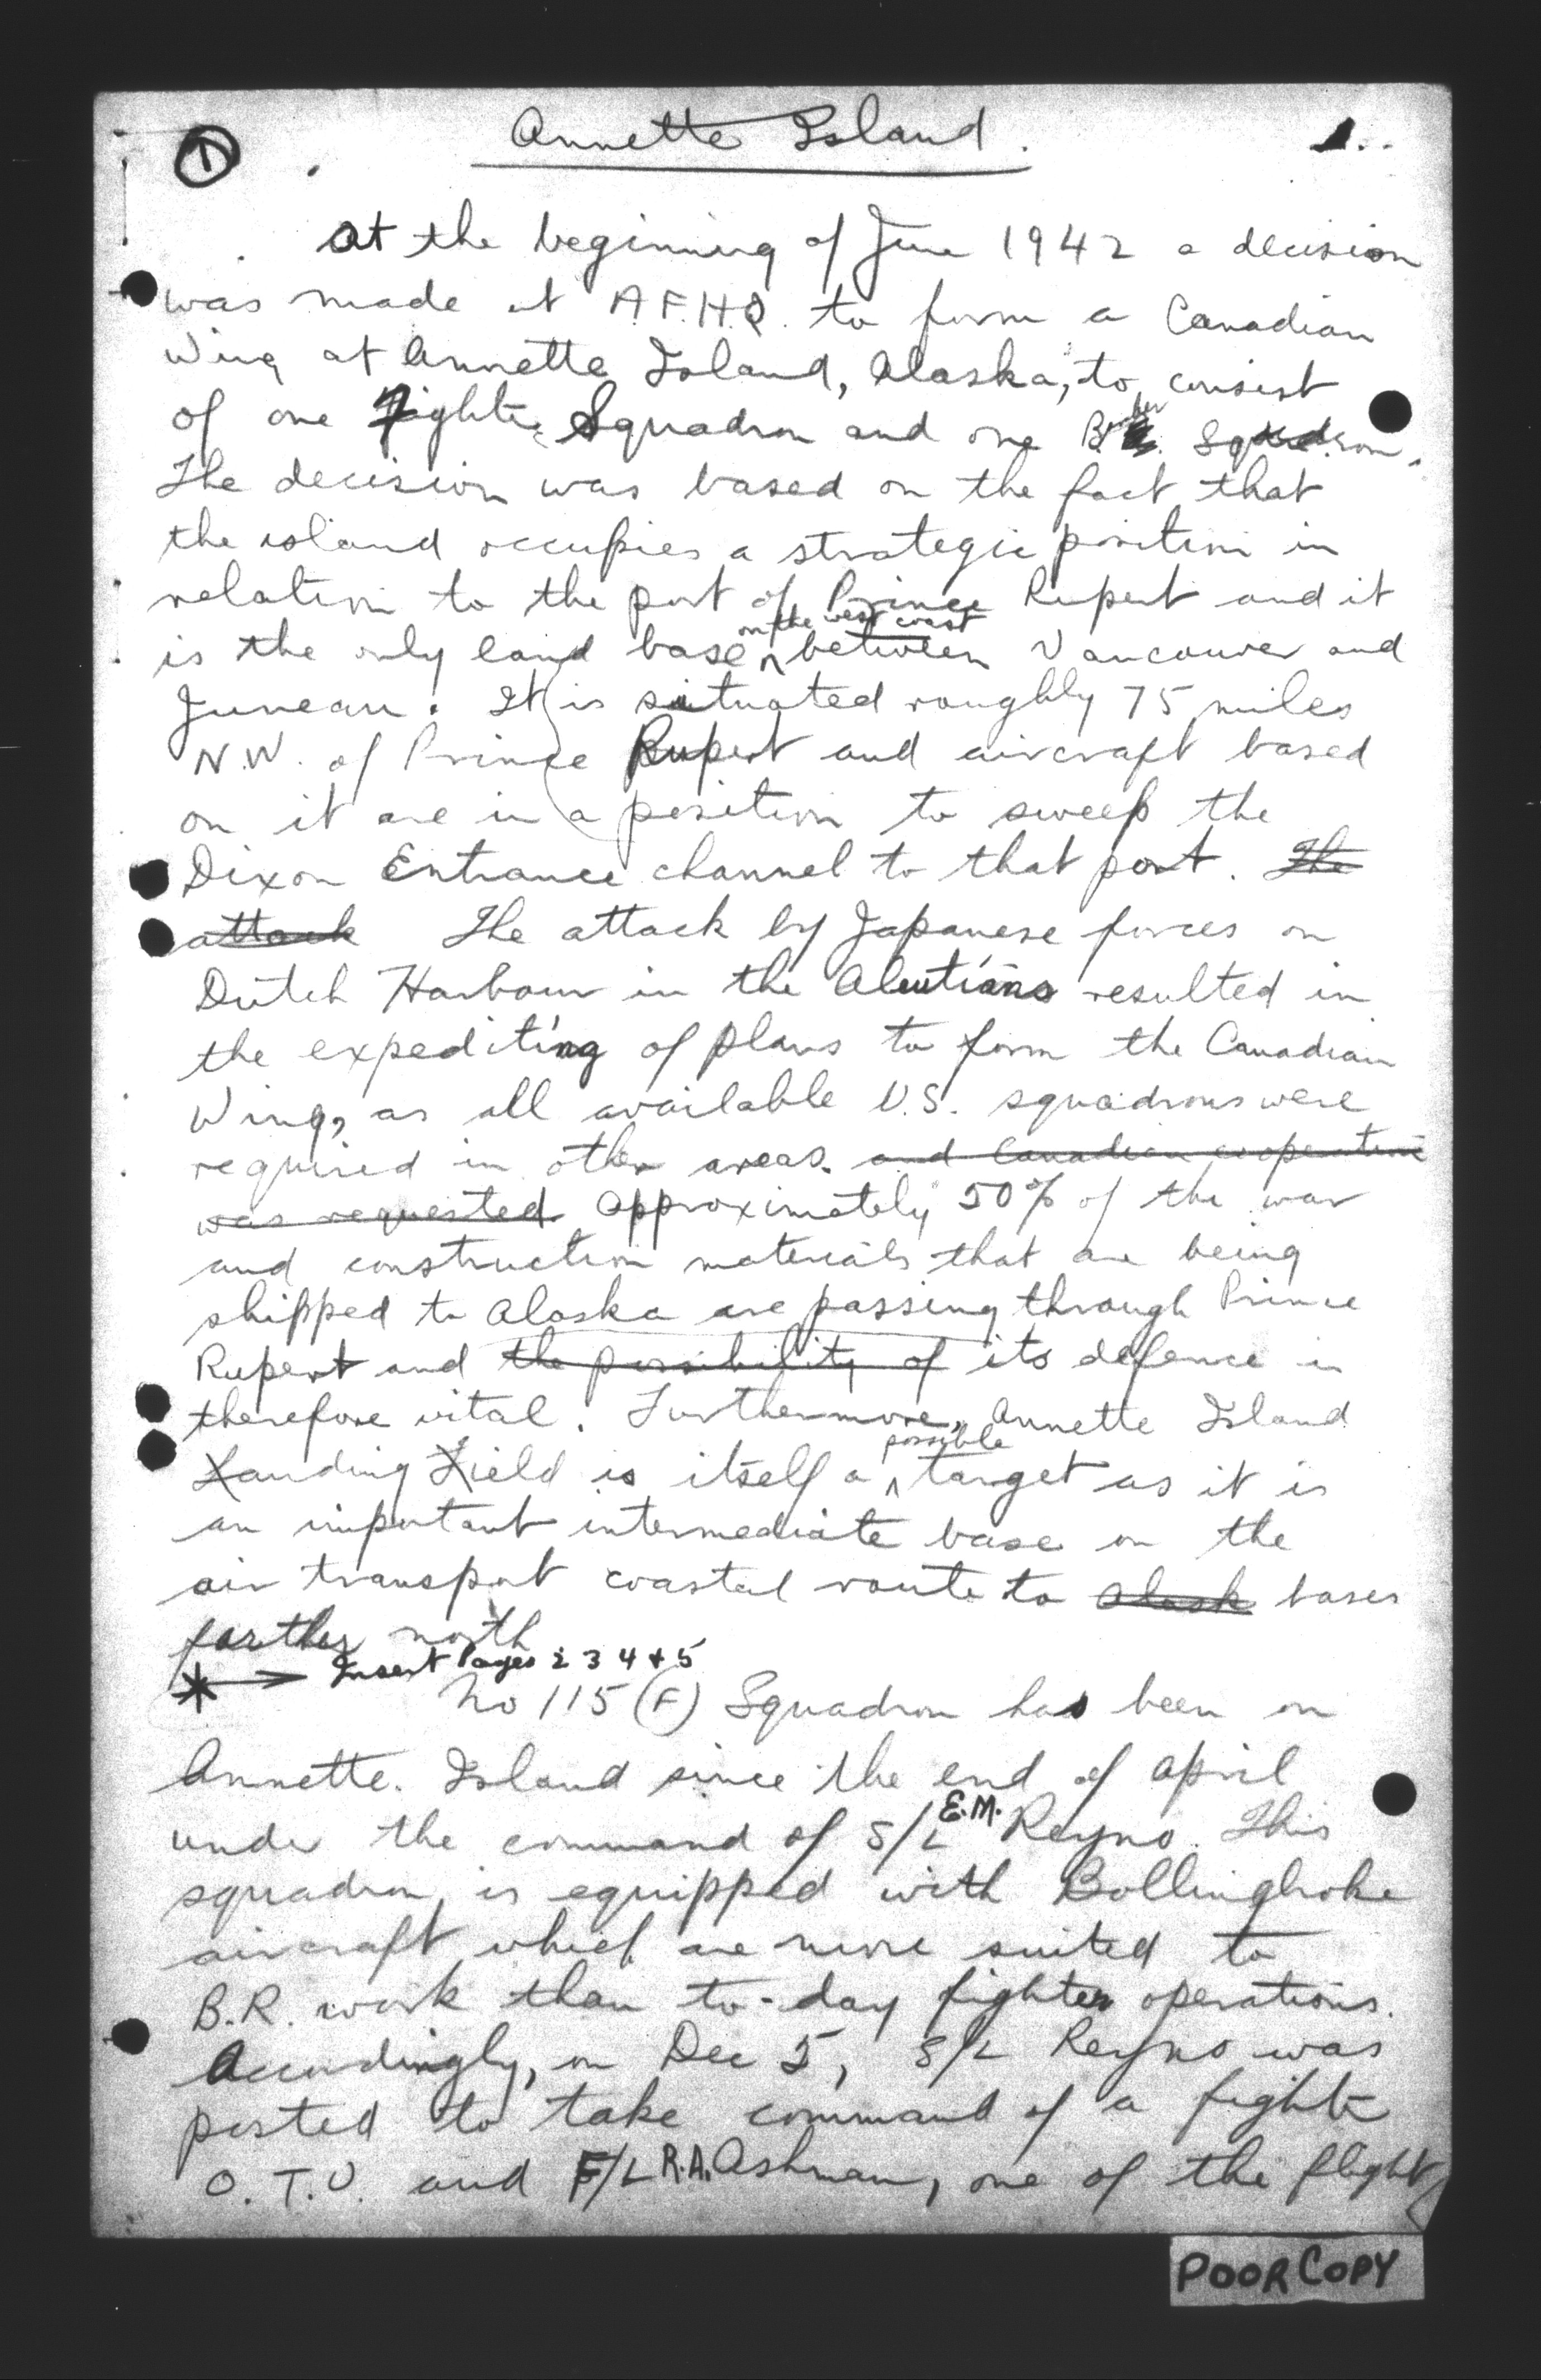 ① Annette Island. 1..
At the beginning of June 1942 a decision
was made at A.F.H.Q. to form a Canadian
Wing at Annette Island, Alaska, to consist
of one Fighter Squadron and one Bomber Squadron.
The decision was based on the fact that
the island occupies a strategic position in
relation to the port of Prince Rupert and it
is the only land base on the west coast between Vancouver and
Juneau. It is situated roughly 75 miles
N.W. of Prince Rupert and aircraft based
on it are in a position to sweep the
Dixon Entrance channel to that port. The
attack The attack by Japanese forces on
Dutch Harbour in the Aleutians resulted in
the expediting of plans to form the Canadian
Wing, as all available U.S. squadrons were
required in other areas. and Canadian cooperation
was requested. Approximately 50% of the war
and construction materials that are being
shipped to Alaska are passing through Prince
Rupert and the possibility of its defence is
therefore vital. Furthermore, Annette Island
Landing Field is itself a possible target as it is
an important intermediate base on the
air transport coastal route to Alask bases
farther north
* → Insert Pages 2 3 4 + 5
No 115 (F) Squadron has been on
Annette. Island since the end of April
under the command of S/L E.M. Reyno. This
squadron is equipped with Bollingbroke
aircraft which are more suited to
B.R. work than to-day fighter operations.
Accordingly, on Dec 5, S/L Reyno was
posted to take command of a fighter
O.T.U. and F/L R.A. Ashman, one of the flight
POOR COPY